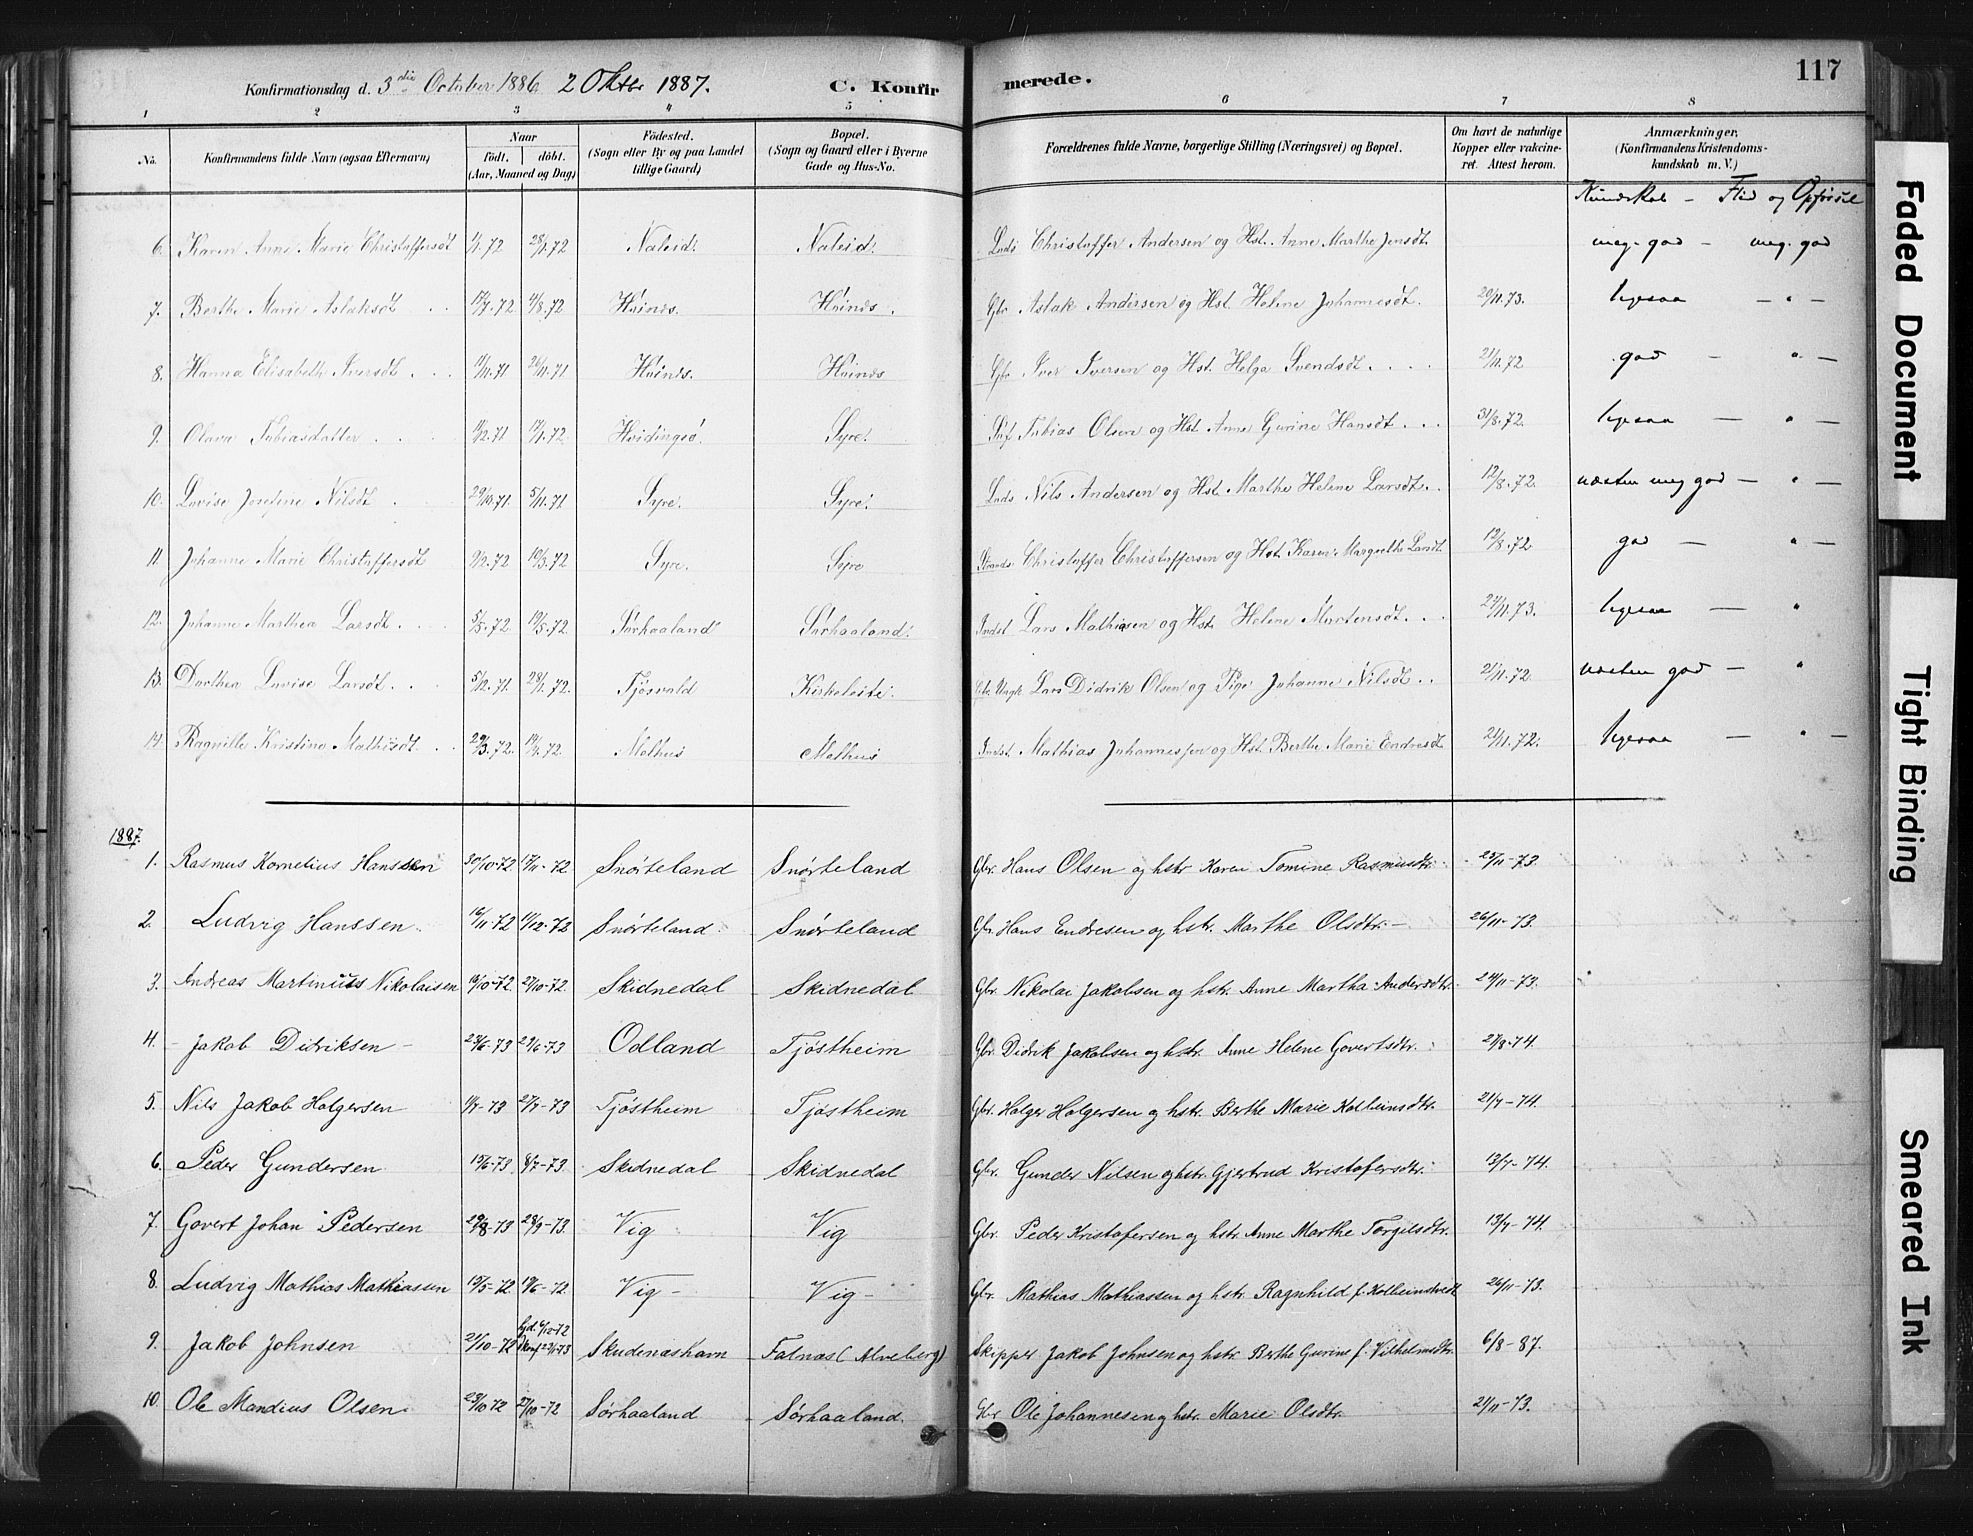 Konfirmationsdag d. 3die October 1886. 2 Oktbr 1887. C. Konfirmerede. 117
1 2 3 4 5 6 7 8
No. Konfirmandens fulde Navn (ogsaa Efternavn) Naar födt. döbt. (Aar, Maaned og Dag) Födested. (Sogn eller By og paa Landet tillige Gaard) Bopæl. (Sogn og Gaard eller i Byerne Gade og Hus-No. Forældrenes fulde Navne, borgerlige Stilling (Næringsvei) og Bopæl. Om havt de naturlige Kopper eller vakcineret. Attest herom. Anmærkninger. (Konfirmandens Kristendomskundskab m. V.)
Kundskab - Flid og Opførsel
6. Karen Anne Marie Christoffersdt 28/1.72 Naleid. Naleid. Christoffer Andersen og Hst. Anne Marthe Jensdt. meg. god - meg. god
7. Berthe Marie Aslaksdt 17/7.72 4/8.72 Hvinds. Hvinds. Gbr Aslak Andersen og Hst. Helene Johannesdt. 20/11.73. ligesaa - " -
8. Hanna Elisabeth Iversdt 11/11.71 26/11.71 Hvinds. Hvinds Gbr Iver Iversen og Hst. Helga Svendsdt. 21/11.72 god - " -
9. Olava Tobiasdatter 11/12.71 14/1.72 Hvidingsö. Syre. Tobias Olsen og Hst. Anne Gurine Hansdt 31/8.72. ligesaa - " -
10. Lovise Josefine Nilsdt 29/10.71 5/11.71 Syre. Syre. Nils Andersen og Hst. Marthe Helene Larsdt. 12/8.72. næsten meg god - " -
11. Johanne Marie Christoffersdt 9/2.72 10/3.72 Syre. Syre Strands Christoffer Christoffersen og Hst. Karen Margrethe Larsdt 12/8.72 god - " -
12. Johanne Marthea Larsdt. 5/5.72 19/5.72 Sørhaaland Sørhaaland. Indst Lars Mathiasen og Hst. Helene Mortensdt. 24/11.73. ligesaa - "
13. Dorthea Lovise Larsdt. 5/12.71 28/1.72. Tjösvold Kirkeleite. Lars Didrik Olsen og Pige Johanne Nilsdt 21/11.72. næsten god - "
14. Ragnille Kristine Mathisdt 29/3.72. 14/4.72. Mølhus Mølhus Indst. Mathias Johannessen og Hst. Berthe Marie Endresdt 21/11.72. ligesaa - " -
1887.
1. Rasmus Kornelius Hanssen 30/10-72 17/11-72 Snørteland Snørteland Gbr. Hans Olsen og hstr Karen Tomine Rasmusdtr. 25/11-73.
2. Ludvig Hanssen. 16/11-72 11/12-72 Snørteland. Snørteland Gbr. Hans Endresen og hstr. Marthe Olsdtr. - 26/11-73.
3. Andreas Martinius Nikolaisen 19/10-72. 27/10-72. Skidnedal Skidnedal Gbr. Nikolai Jakobsen og hstr. Anne Martha Andersdtr. 24/11-73.
4. - Jakob Didriksen - 23/6-73 29/6-73 Odland Tjøstheim Gbr. Didrik Jakobsen og hstr. Anne Helene Govertsdtr. 27/8-74.
5. Nils Jakob Holgersen 11/7-73 27/7-73 Tjøstheim Tjøstheim Gbr. Holger Holgersen og hstr. Berthe Marie Kolbeinsdtr. 21/7-74.
6. Peder Gundersen 15/6-73 8/7-73 Skidnedal Skidnedal Gbr. Gunder Nilsen og hstr. Gjertrud Kristofersdtr. 13/7-74.
7. Govert Johan Pedersen 29/8-73 28/9-73. Vig Vig Gbr. Peder Kristofersen og hstr. Anne Marthe Torgilsdtr. 13/7-74.
8. Ludvig Mathias Mathiasen 15/5-72 19/5-72 Vig - Vig - Gbr. Mathias Mathiassen og hstr. Ragnhild f. Kolbeinstvedt 26/11-73.
9. Jakob Johnsen 21/10-72 hjd. 6/12-72 Skudenæshavn Falnæs (Alveberg) Skipper Jakob Johnsen og hstr. Berthe Gurine f. Vilhelmsdtr. 6/8-87.
10. Ole Mandius Olsen. 23/10 72 27/10-72 Sørhaaland Sørhaaland. Gbr Ole Johannesen og hstr. Marie Olsdtr. 21/11-73.
Faded Document
Tight Binding
Smeared Ink